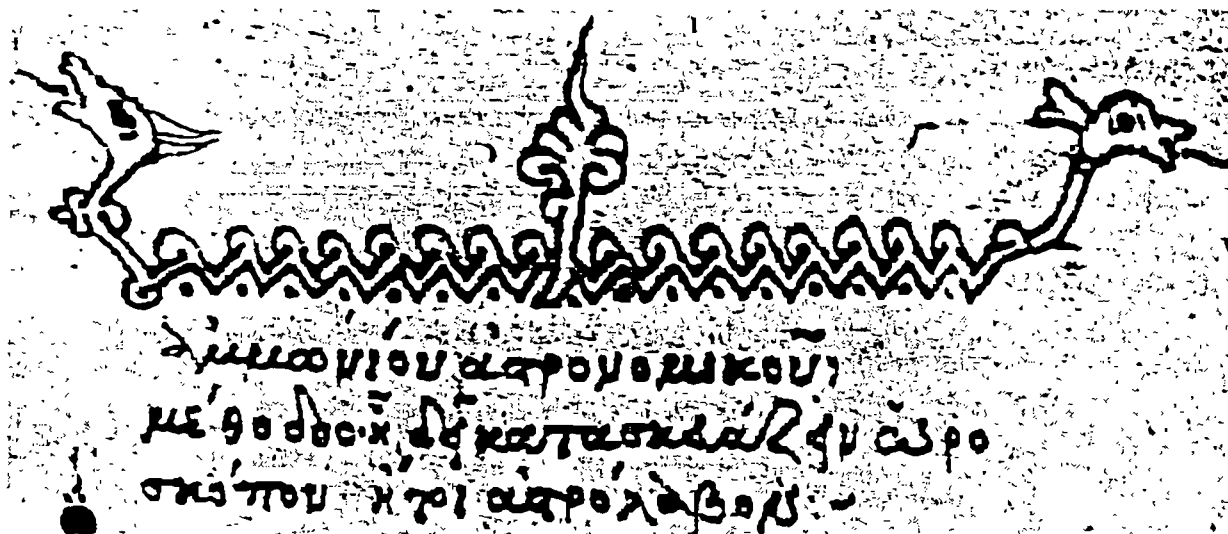 ἀμμωνίου ἀστρονομικοῦ
μέθοδος κατασκευάζειν ὡρο
σκόπον ἤτοι ἀστρόλαβον :-